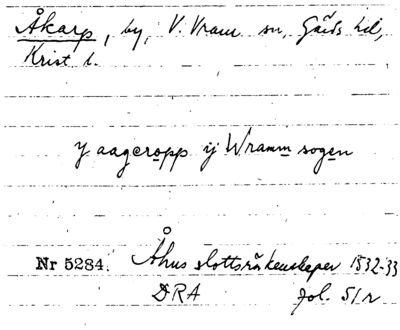 Åkarp, by, V. Vram sn, Gärds hd,
Krist l.
y aageropp ij Wramm sogen
Nr 5284. Åhus slottsräkenskaper 1532-33
DRA fol. 51r